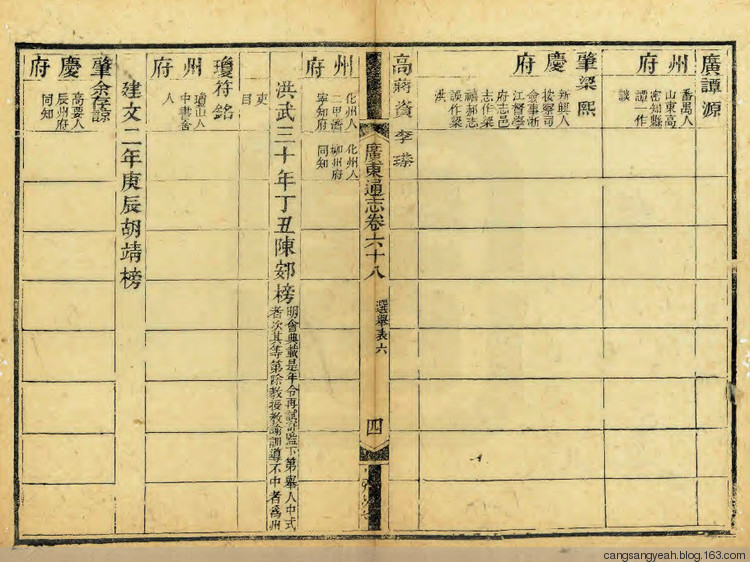 廣州府
譚源
番禺人
山東高
密知縣
譚作
談
肇慶府
梁熙
新興人
按察司
僉事浙
江督學
府志邑
志作梁
禧郝志
誤作梁
洪
高州府
蔣資
化州人
二甲濟
寧知府
李瑧
化州人
柳州府
同知
廣東通志卷六十八
選舉表六
四
洪武三十年丁丑陳䢿榜
明會典載是年令再試寄監下第舉人中式
者次其等第除教授教諭訓導不中者爲州
吏
目
瓊州府
符銘
瓊山人
中書舍
人
建文二年庚辰胡靖榜
肇慶府
余存諒
高要人
辰州府
同知
cangsangyeah.blog.163.com